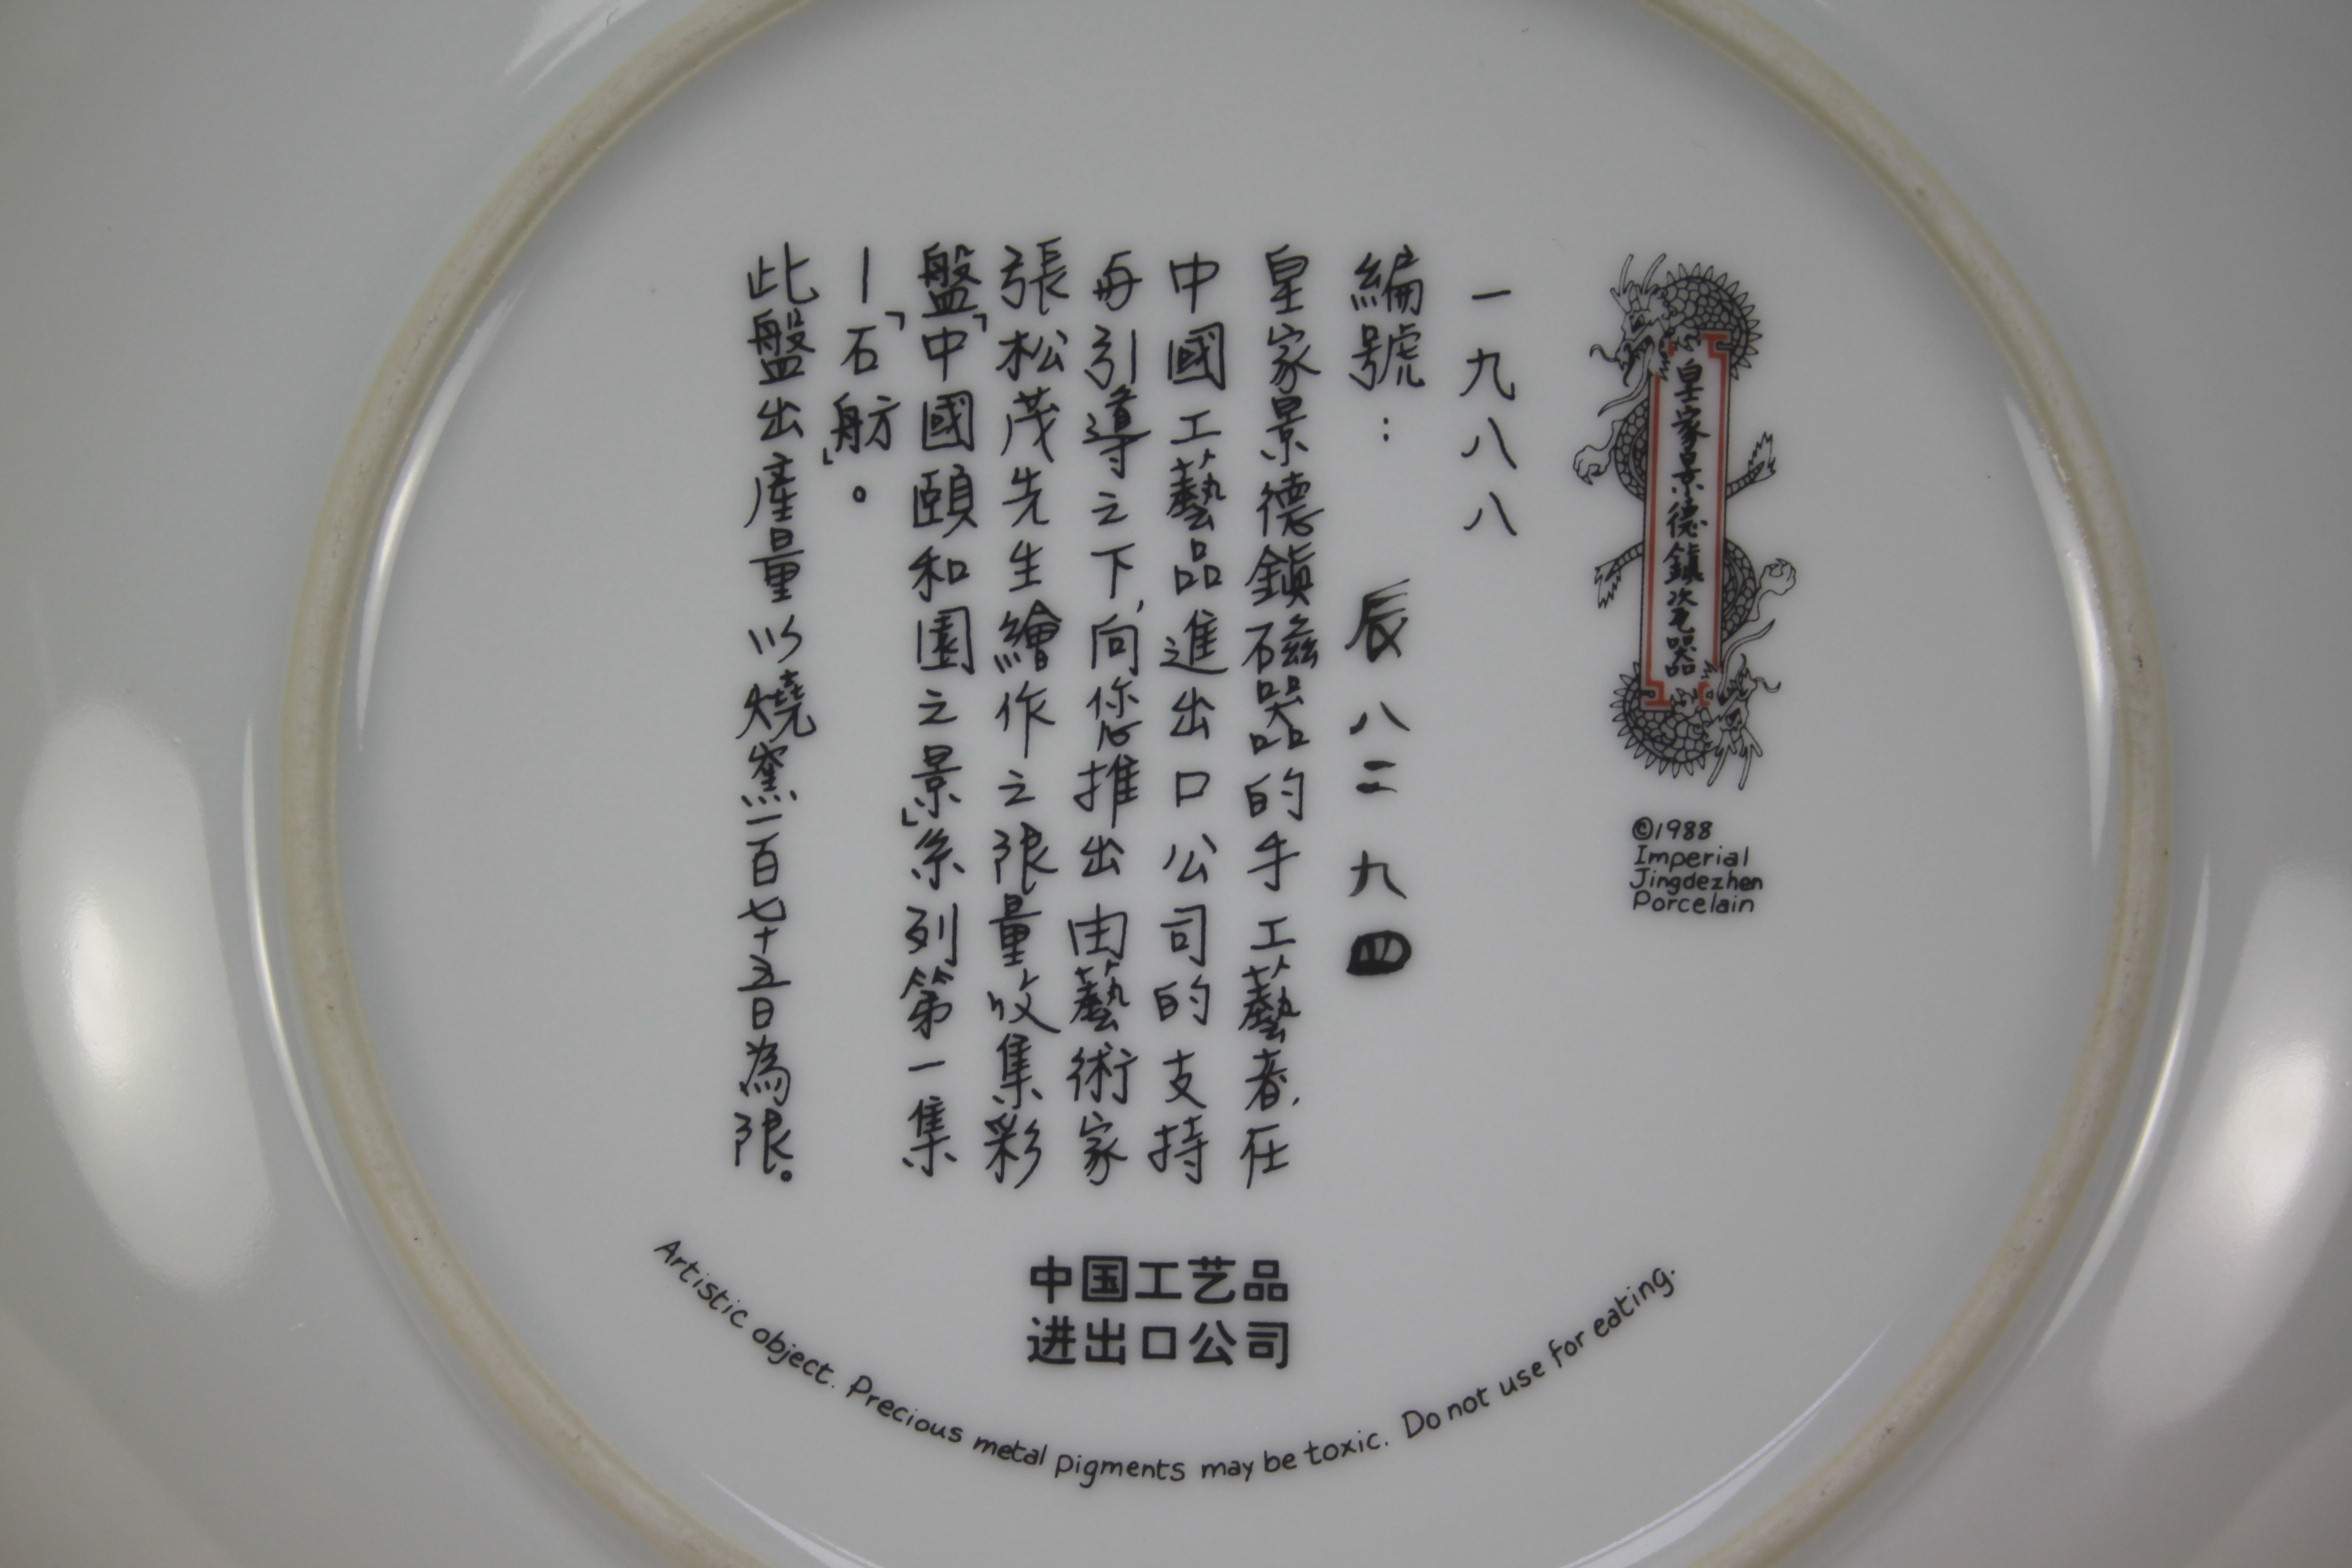 皇家景德鎮瓷器
©1988
Imperial
Jingdezhen
Porcelain
一九八八
編號： 辰八二九四
皇家景德鎮磁器的手工藝者，在
中國工藝品進出口公司的支持
与引導之下，向您推出由藝術家
張松茂先生繪作之限量收集彩
盤「中國頤和園之景」系列第一集
—「石舫」。
此盤出產量以燒窯一百七十五日為限。
中国工艺品
进出口公司
Artistic object. Precious metal pigments may be toxic. Do not use for eating.